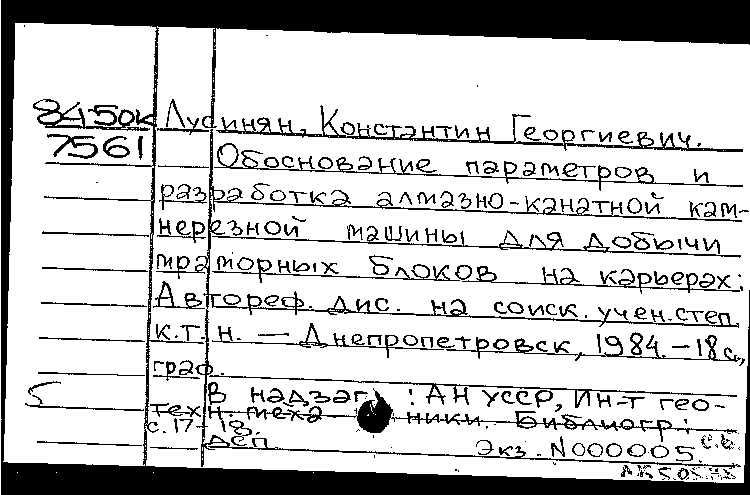 84-50к Лусинян, Константин Георгиевич.
7561 Обоснование параметров и
разработка алмазно-канатной кам-
нерезной машины для добычи
мраморных блоков на карьерах:
Автореф. дис. на соиск. учен. степ.
к.т.н. — Днепропетровск, 1984. - 18 с.,
граф.
5 В надзаг.: АН УССР, Ин-т гео-
техн. механики. Библиогр.:
с. 17-18.
ДСП Экз. N000005. с.б.